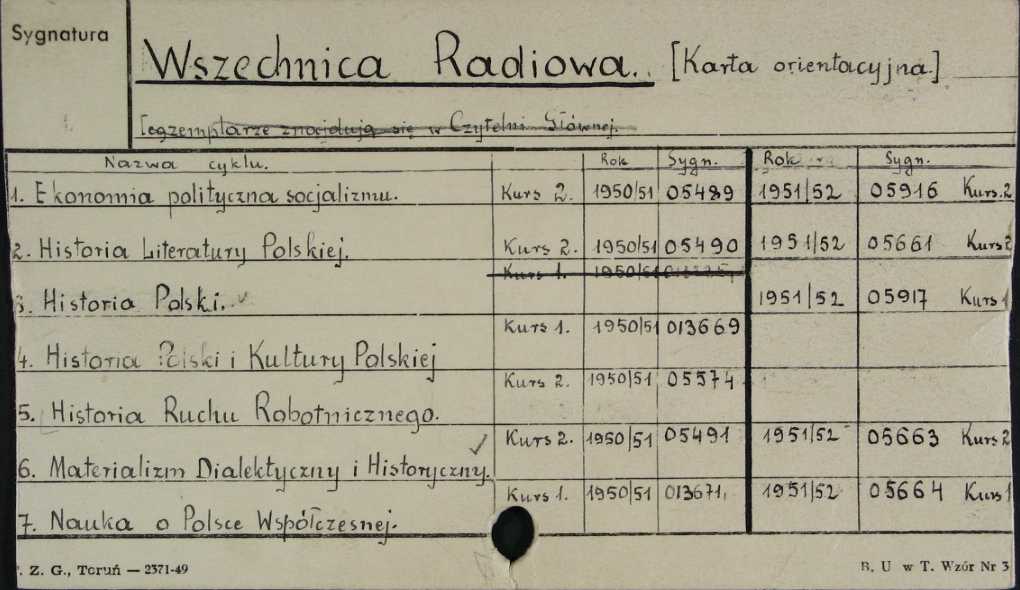 Sygnatura
Wszechnica Radiowa. [Karta orientacyjna.]
[egzemplarze znajdują się w Czytelni Głównej.
Nazwa cyklu. Rok Sygn. Rok Sygn.
1. Ekonomia polityczna socjalizmu. Kurs 2. 1950/51 05489 1951/52 05916 Kurs.2
2. Historia Literatury Polskiej. Kurs 2. 1950/51 05490 1951/52 05661 Kurs2
Kurs 1. 1950/51
3. Historia Polski. 1951/52 05917 Kurs1
Kurs 1. 1950/51 013669
4. Historia Polski i Kultury Polskiej
Kurs 2. 1950/51 05574
5. Historia Ruchu Robotnicznego.
Kurs 2. 1950/51 05491 1951/52 05663 Kurs2
6. Materializm Dialektyczny i Historyczny.
Kurs 1. 1950/51 013671, 1951/52 05664 Kurs1
7. Nauka o Polsce Współczesnej.
Z. G., Toruń — 2371-49 B. U w T. Wzór Nr 3